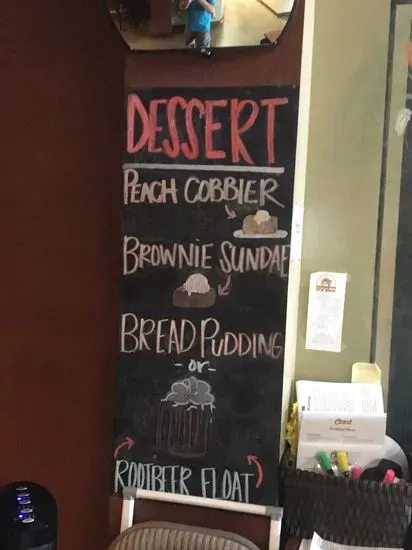 DESSERT
PEACH COBBLER
BROWNIE SUNDAE
BREAD PUDDING
- or -
ROOTBEER FLOAT